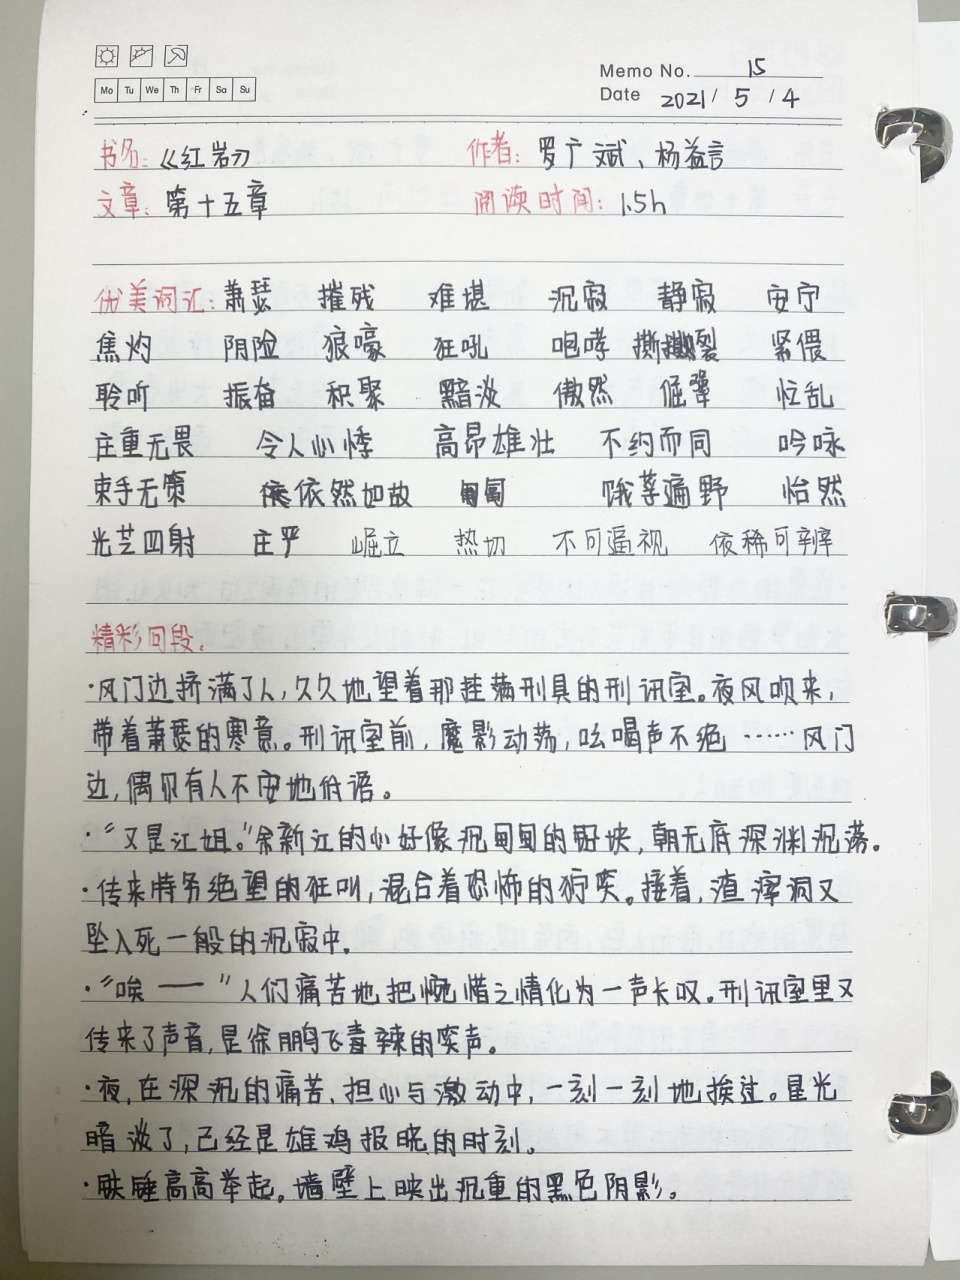 Mo Tu We Th Fr Sa Su
Memo No. 15
Date 2021 / 5 / 4
书名：《红岩》 作者：罗广斌、杨益言
文章：第十五章 阅读时间：1.5h
优美词汇：萧瑟 摧残 难堪 沉寂 静寂 安宁
焦灼 阴险 狼嚎 狂吼 咆哮 撕裂 紧偎
聆听 振奋 积聚 黯淡 傲然 倔犟 忙乱
庄重无畏 令人心悸 高昂雄壮 不约而同 吟咏
束手无策 依然如故 匍匐 饿莩遍野 怡然
光芒四射 庄严 崛立 热切 不可逼视 依稀可辨
精彩句段：
·风门边挤满了人，久久地望着那挂满刑具的刑讯室。夜风吹来，
带着萧瑟的寒意。刑讯室前，魔影动荡，吆喝声不绝……风门
边，偶尔有人不安地低语。
·“又是江姐。”余新江的心好像沉甸甸的铅块，朝无底深渊沉落。
·传来特务绝望的狂叫，混合着恐怖的狞笑。接着，渣滓洞又
坠入死一般的沉寂中。
·“唉——”人们痛苦地把惋惜之情化为一声长叹。刑讯室里又
传来了声音，是徐鹏飞毒辣的笑声。
·夜，在深沉的痛苦、担心与激动中，一刻一刻地挨过。星光
暗淡了，已经是雄鸡报晓的时刻。
·铁锤高高举起。墙壁上映出沉重的黑色阴影。